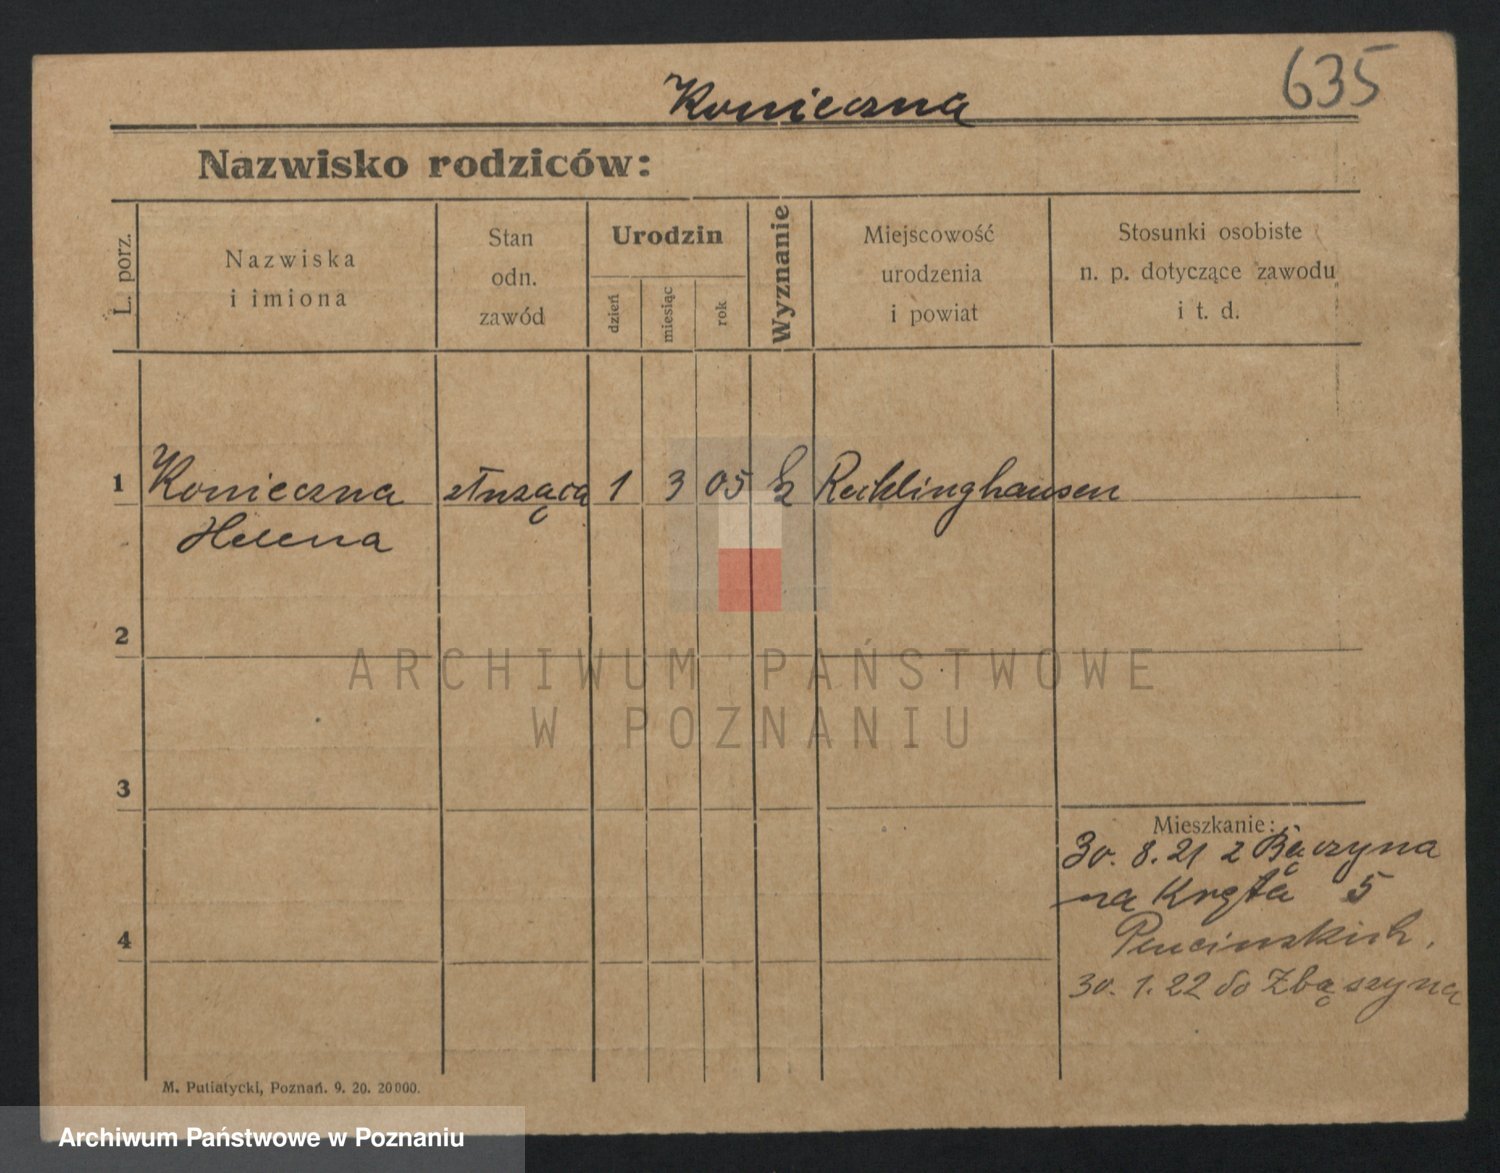 635
Konieczna
Nazwisko rodziców:
L. porz.
Nazwiska
i imiona
Stan
odn.
zawód
Urodzin
dzień
miesiąc
rok
Wyznanie
Miejscowość
urodzenia
i powiat
Stosunki osobiste
n. p. dotyczące zawodu
i t. d.
1 Konieczna służąca 1 3 05 k Recklinghausen
Helena
2
3
4
Mieszkanie:
30. 8. 21 z
na Kręta 5
30. 1. 22 do Zbąszyna
M. Putiatycki, Poznań. 9. 20. 20000.
ARCHIWUM PAŃSTWOWE
W POZNANIU
Archiwum Państwowe w Poznaniu